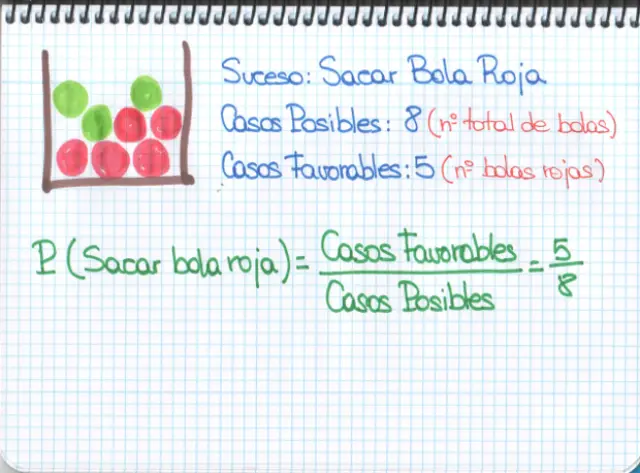 Suceso: Sacar Bola Roja
Casos Posibles: 8 (nº total de bolas)
Casos Favorables: 5 (nº bolas rojas)
P (Sacar bola roja) = Casos Favorables / Casos Posibles = 5/8